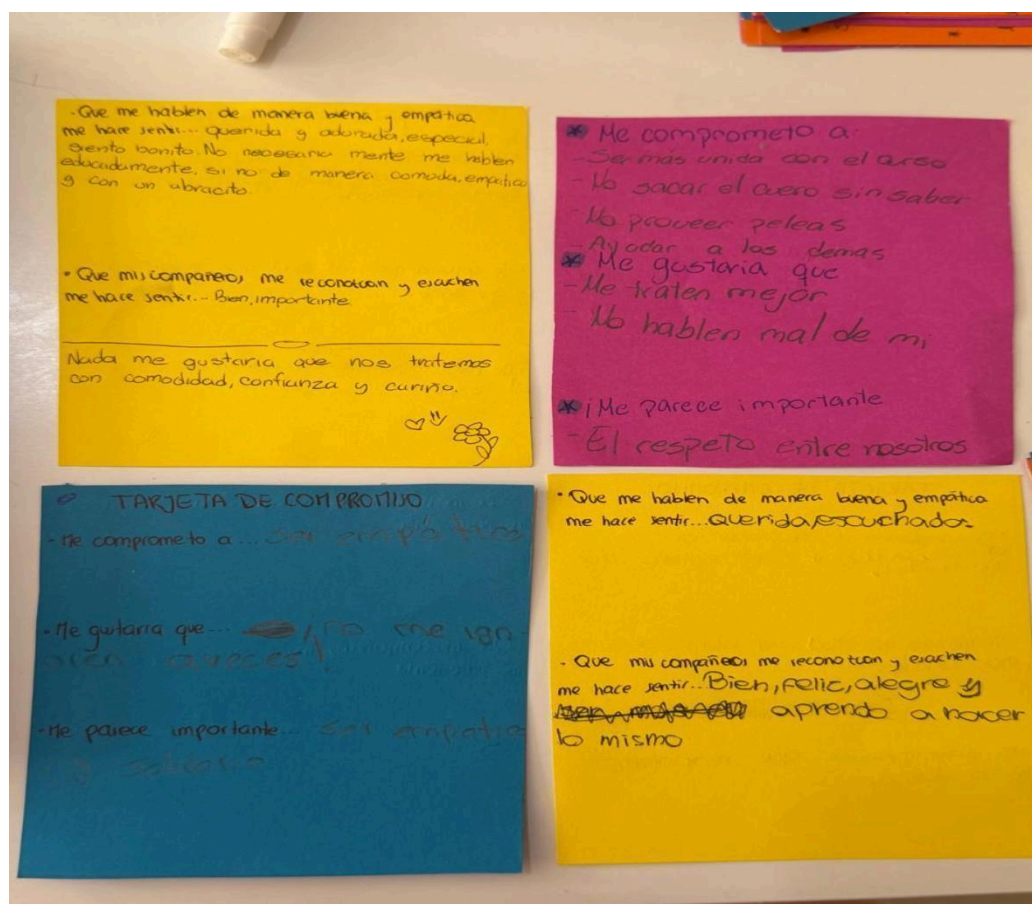 - Que me hablen de manera buena y empática
me hace sentir... querida y adorada, especial,
siento bonito. No necesaria mente me hablen
educadamente, si no de manera comoda, empatica
y con un abracito.
• Que mis compañeros me reconozcan y escuchen
me hace sentir... Bien, importante
Nada me gustaria que nos tratemos
con comodidad, confianza y cariño.
* Me comprometo a:
- Ser más unida con el curso
- No sacar el cuero sin saber
- No proveer peleas
- Ayudar a los demas
* Me gustaria que
- Me traten mejor
- No hablen mal de mi
* ¡Me parece importante
- El respeto entre nosotros
TARJETA DE COMPROMISO
- Me comprometo a... ser empáticos
- Me gustaria que... no me ign
oren aveces
- Me parece importante... ser empatic
y
• Que me hablen de manera buena y empática
me hace sentir... querida, escuchados
- Que mis compañeros me reconozcan y escuchen
me hace sentir... Bien, felic, alegre y
aprendo a hacer
lo mismo